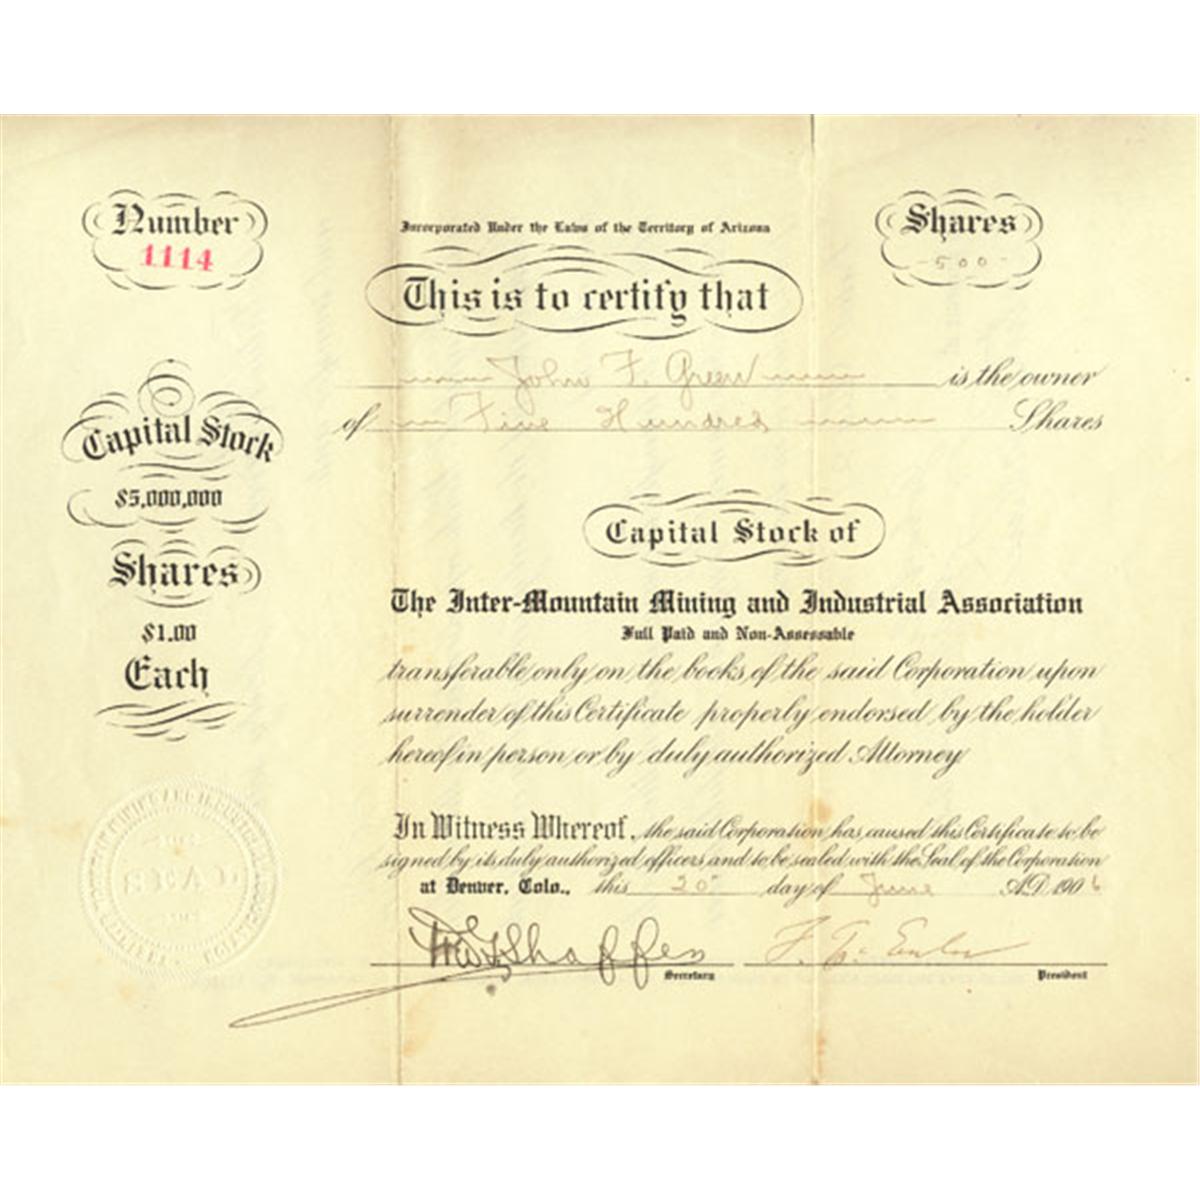 Number
1114
Incorporated Under the Laws of the Territory of Arizona
Shares
500
This is to certify that
John F. Green is the owner
of Five Hundred Shares
Capital Stock
$5,000,000
Shares
$1.00
Each
Capital Stock of
The Inter-Mountain Mining and Industrial Association
Full Paid and Non-Assessable
transferable only on the books of the said Corporation upon
surrender of this Certificate properly endorsed by the holder
hereof in person or by duly authorized Attorney
In Witness Whereof, the said Corporation has caused this Certificate to be
signed by its duly authorized officers and to be sealed with the Seal of the Corporation
at Denver, Colo., this 20 day of June A.D. 1906
Shaffer
Secretary
President